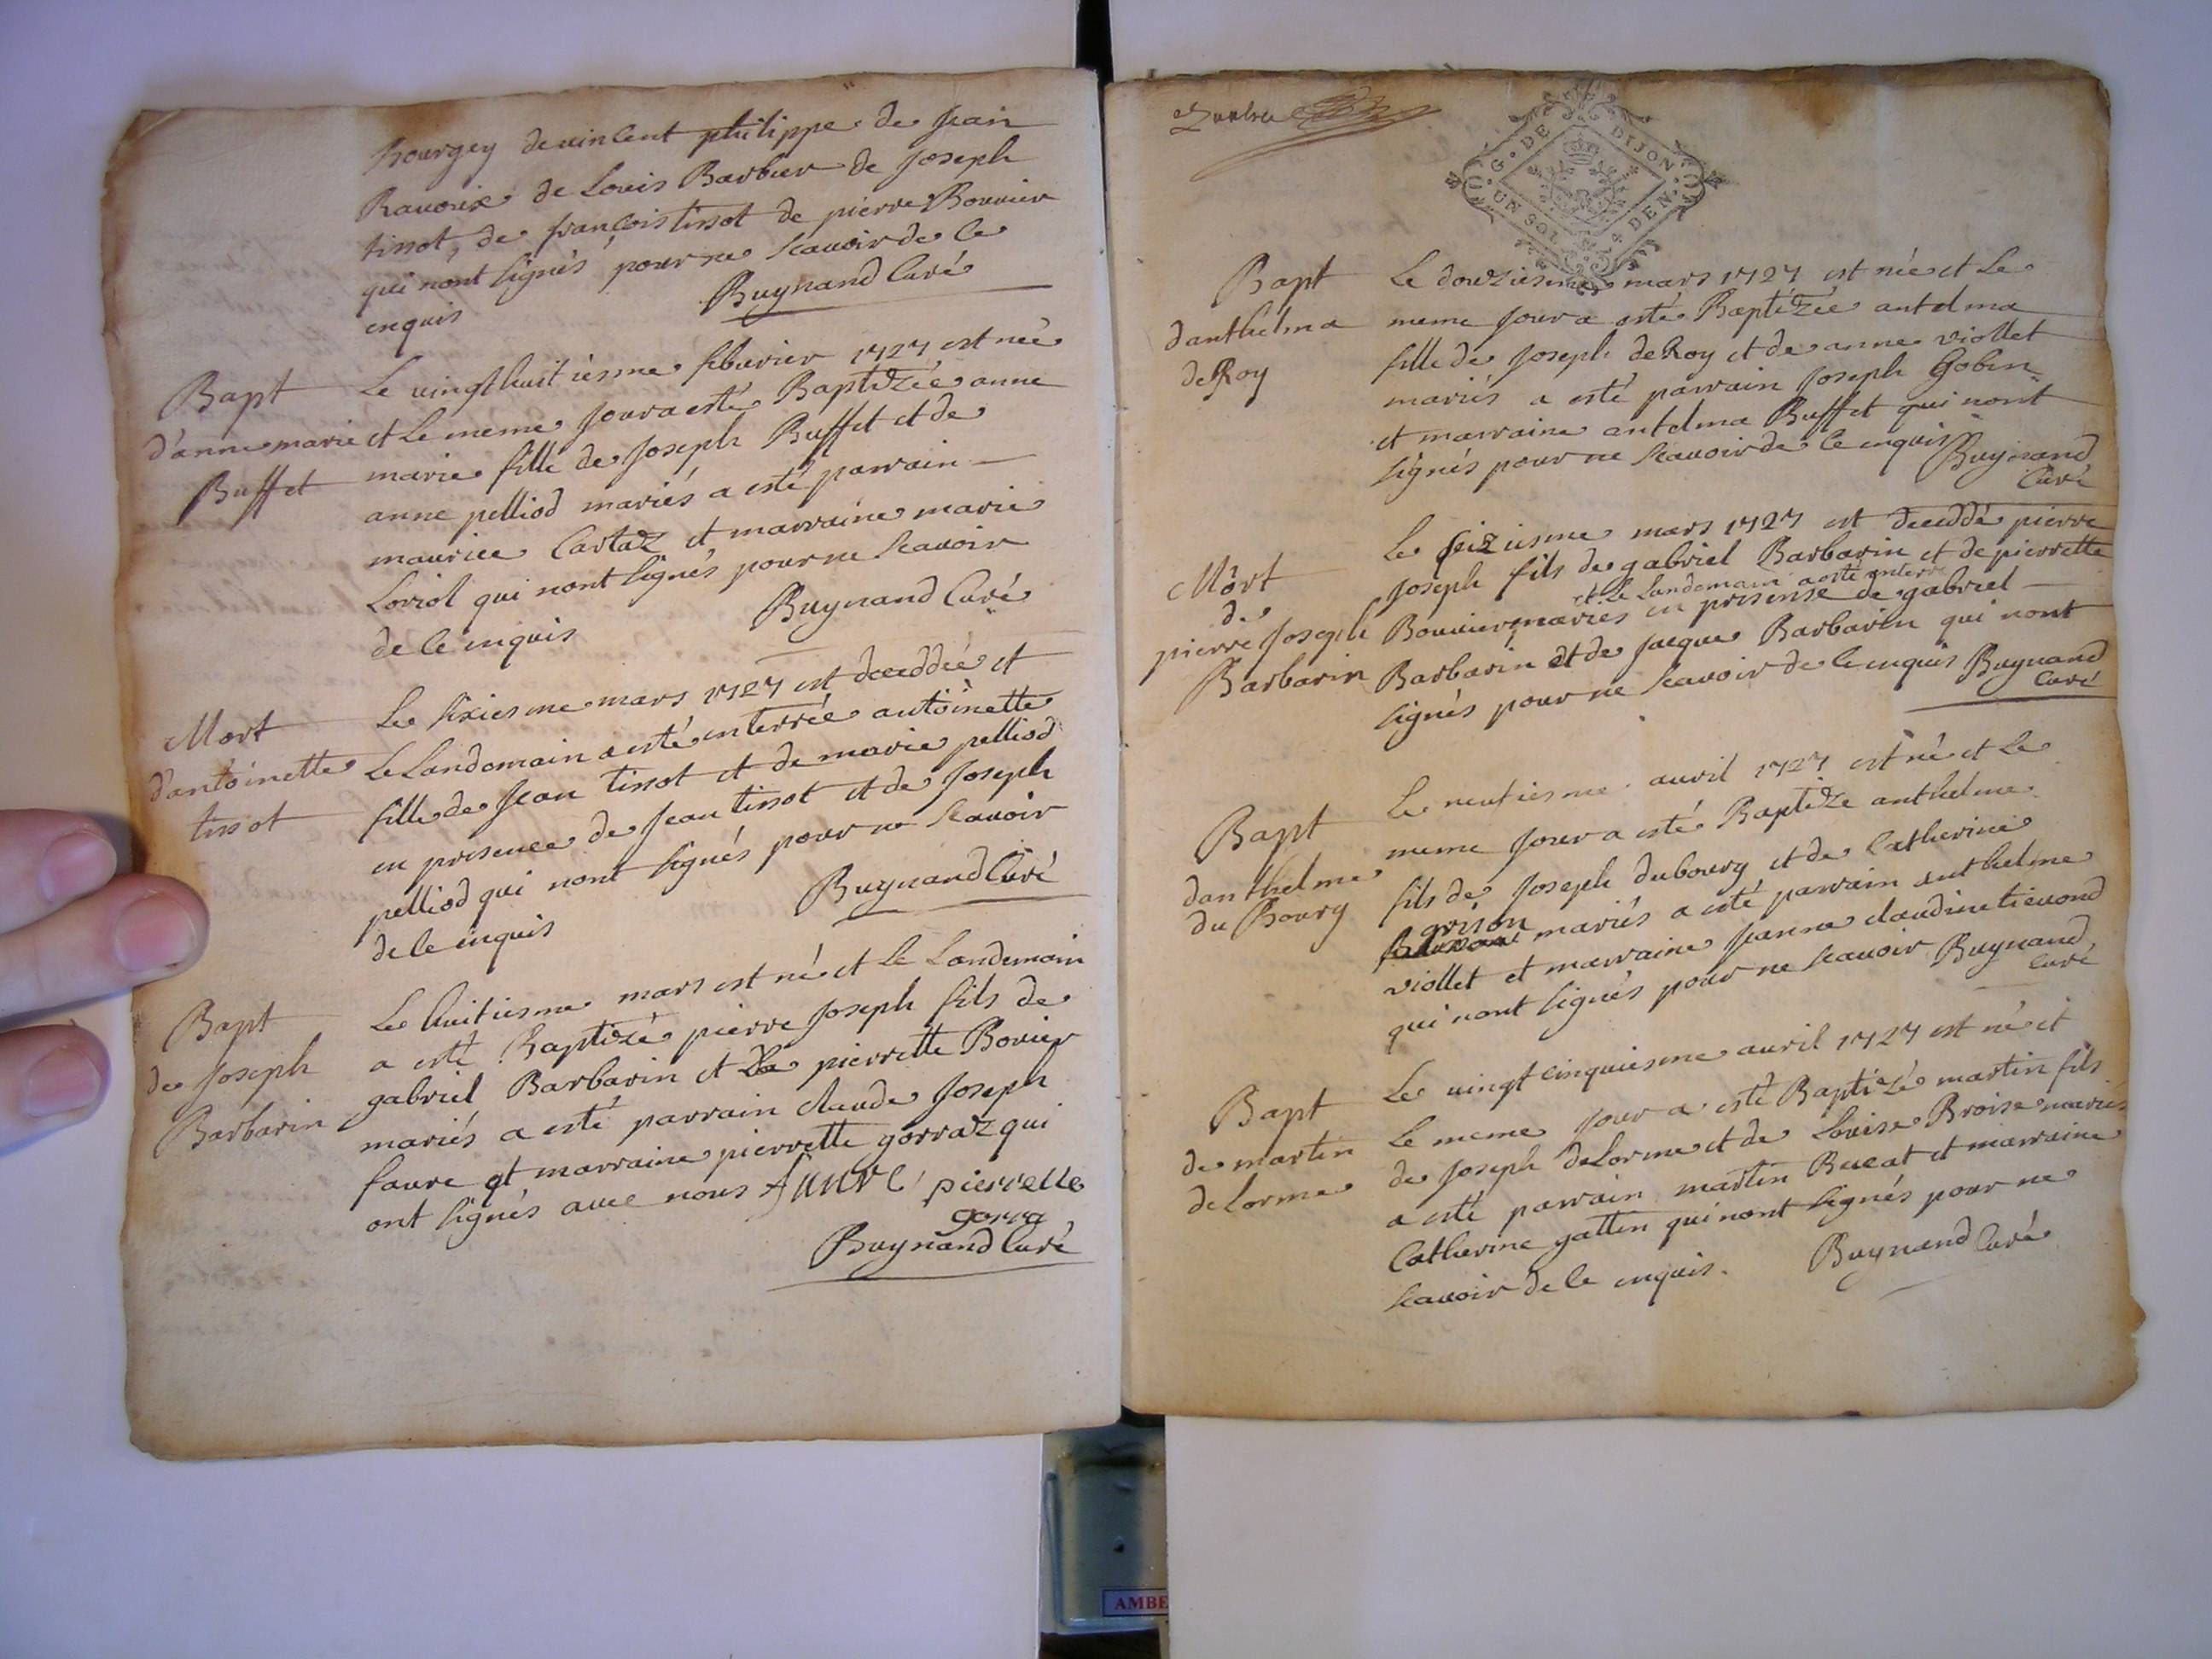 hourgey de vincent philippe de Jean
Ravoire de Louis Barbier de Joseph
tissot, de francois tissot de pierre Bouvier
qui nont signés pour ne scauoir de ce
enquis
Buynand Curé
Bapt
d'anne marie
Buffet
Le vingt huit iesme feburier 1727 est née
et le meme jour a esté Baptizée anne
marie fille de Joseph Buffet et de
anne pelliod mariés a esté parrain
maurice Cartaz et marraine marie
Loriol qui nont signés pour ne scauoir
de ce enquis
Buynand Curé
Mort
d'antoinette
tissot
Le sixiesme mars 1727 est deceddée et
Le Landemain a esté enterrée antoinette
fille de Jean tissot et de marie pelliod
en presence de Jean tissot et de Joseph
pelliod qui nont signés pour ne scauoir
de ce enquis
Buynand Curé
Bapt
de Joseph
Barbarin
Le huitiesme mars est né et le Landemain
a esté Baptizé pierre Joseph fils de
gabriel Barbarin et de pierrette Bovier
mariés a esté parrain claude Joseph
faure et marraine pierrette gorraz qui
ont signés auec nous faure pierrette
gorra
Buynand Curé
G. DE DIJON
UN SOL 4 DEN.
Bapt
danthelma
deRoy
Le douziesme mars 1727 est née et Le
meme jour a esté Baptizée antelma
fille de Joseph deRoy et de anne viollet
mariés a esté parrain Joseph Gobin
et marraine antelma Buffet qui nont
signés pour ne scauoir de ce enquis Buynand
Curé
Mort
de
pierre Joseph
Barbarin
Le seiziesme mars 1727 est deceddé pierre
Joseph fils de gabriel Barbarin et de pierrette
et Le Landemain a esté enterré
Bouvier mariés en presense de gabriel
Barbarin et de Jacque Barbarin qui nont
signés pour ne scauoir de ce enquis Buynand
Curé
Bapt
danthelme
du Bourg
Le neufiesme auril 1727 est né et le
meme jour a esté Baptizé anthelme
fils de Joseph dubourg et de Catherine
grison
mariés a esté parrain anthelme
viollet et marraine Janne claudine tieuond
qui nont signés pour ne scauoir Buynand
Curé
Bapt
de martin
deLorme
Le vingt cinquiesme auril 1727 est né et
Le meme jour a esté Baptizé martin fils
de Joseph deLorme et de Louise Broise mariés
a esté parrain martin Bucat et marraine
Catherine gattin qui nont signés pour ne
scauoir de ce enquis.
Buynand Curé
AMBE